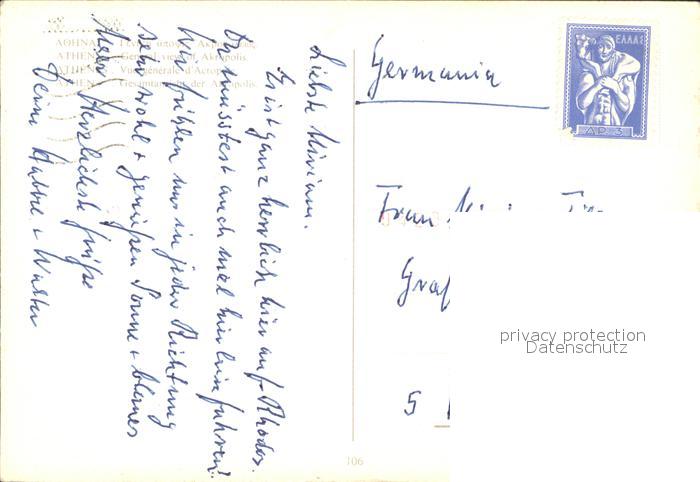 ΑΘΗΝΑΙ
ATHENS General view of Akropolis.
ATHENES Vue générale d'Acropole
ATHEN Gesamtansicht der Akropolis.
Liebste Miriam.
Es ist ganz herrlich hier auf Rhodos.
Du müsstest auch mal hierhin fahren!
Wir fühlen uns in jeder Richtung
sehr wohl + genießen Sonne + blaues
Meer. Herzlichste Grüße
Deine + Walter
Germania
ΕΛΛΑΣ
ΔΡ. 3
Frau
Graf
5
privacy protection
Datenschutz
106